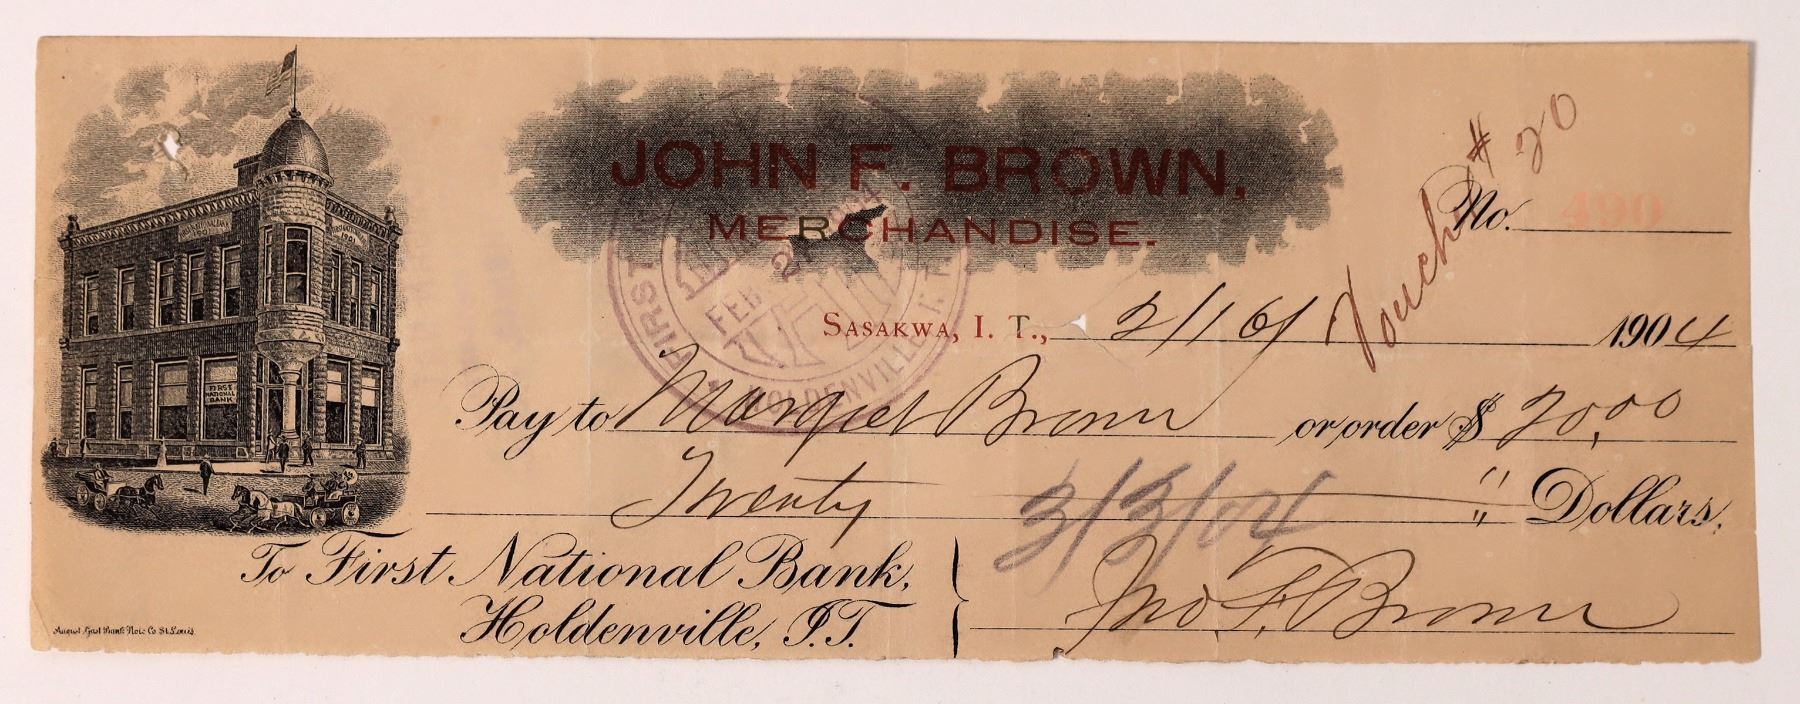 JOHN F. BROWN,
MERCHANDISE.
Voucher # 20
No. 490
SASAKWA, I. T., 2/16/ 1904
Pay to Margret Brown or order $ 20.00
Twenty " Dollars.
3/3/04
To First National Bank,
Holdenville, I.T.
Jno. F. Brown
August Gast Bank Note Co St. Louis.
FIRST
NATIONAL
BANK
1901
FIRST
FEB 27
HOLDENVILLE I. T.